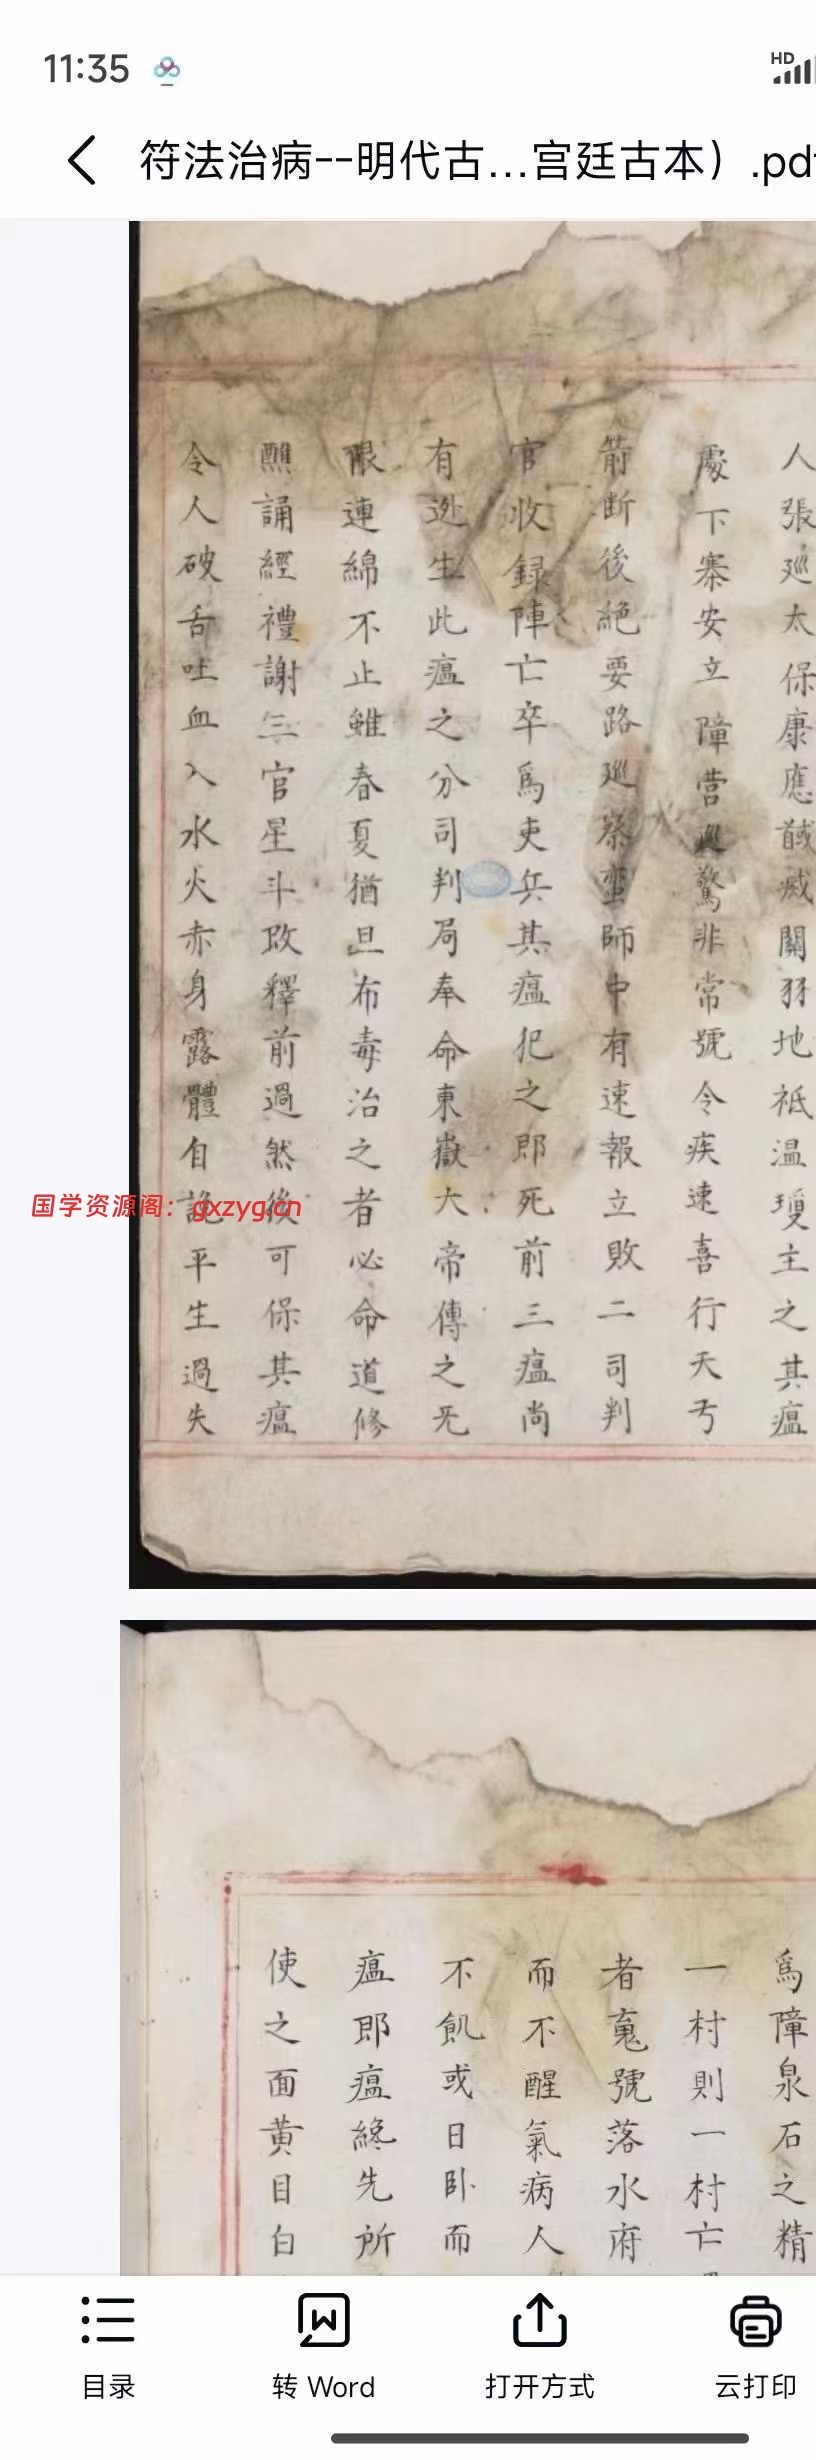 11:35
HD
符法治病--明代古...宫廷古本）.pdf
人張巡太保康應馘臧關羽地祇温瓊主之其瘟
處下寨安立障營巡驚非常號令疾速喜行天丐
箭断後絕要路巡察蛮師中有速報立敗二司判
官收録陣亡卒爲吏兵其瘟犯之即死前三瘟尚
有逃生此瘟之分司判局奉命東嶽大帝傳之死
限連綿不止雖春夏猶旦布毒治之者必命道修
醮誦經禮謝三官星斗改釋前過然後可保其瘟
令人破舌吐血入水火赤身露體自說平生過失
国学资源阁：gxzyg.cn
爲障泉石之精
一村則一村亡
者寃號落水府
而不醒氣病人
不飢或日卧而
瘟即瘟終先所
使之面黄目白
目录
转 Word
打开方式
云打印